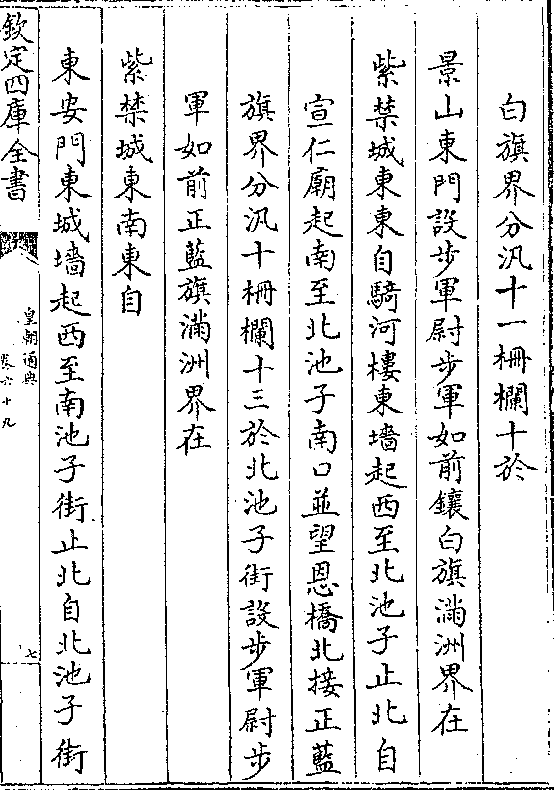 白旗界分汛十一柵欄十於
景山東門設步軍尉步軍如前鑲白旗滿洲界在
紫禁城東東自騎河樓東墻起西至北池子止北自
宣仁廟起南至北池子南口並望恩橋北接正藍
旗界分汛十柵欄十三於北池子街設步軍尉步
軍如前正藍旗滿洲界在
紫禁城東南東自
東安門東城墻起西至南池子街止北自北池子街
欽定四庫全書
皇朝通典
卷六十九
七